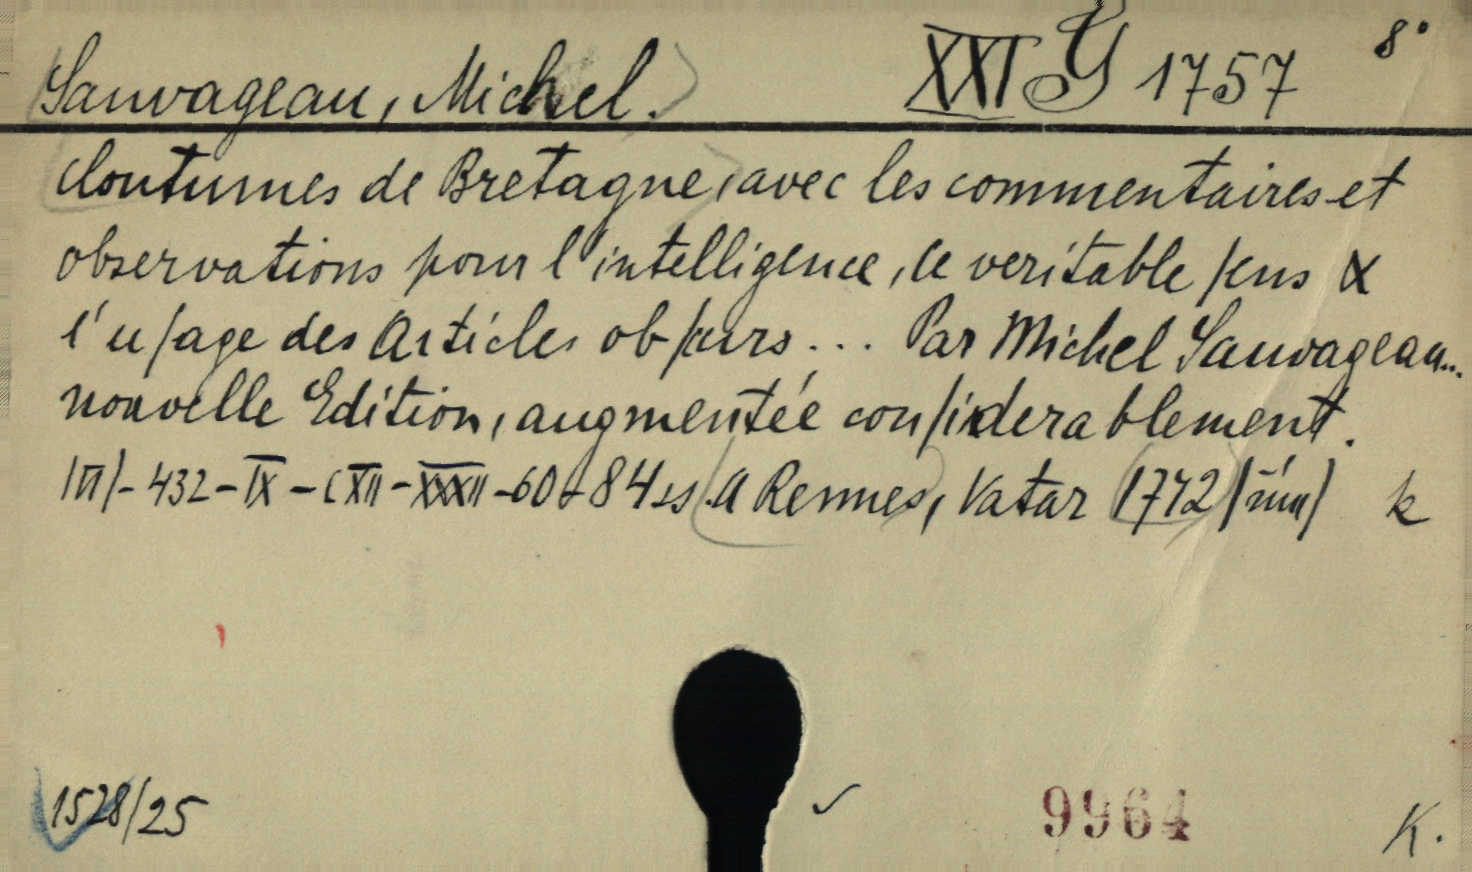 Sauvageau, Michel. XXI G 1757 8°
Coutumes de Bretagne, avec les commentaires et
observations pour l'intelligence, le veritable ſens &
l'uſage des Articles obſcurs... Par Michel Sauvageau...
nouvelle Edition, augmentée conſiderablement.
|III|-432-IX-CXII-XXXII-60+84 ss. A Rennes, Vatar 1742 k
1528/25 ✓ 9964 K.